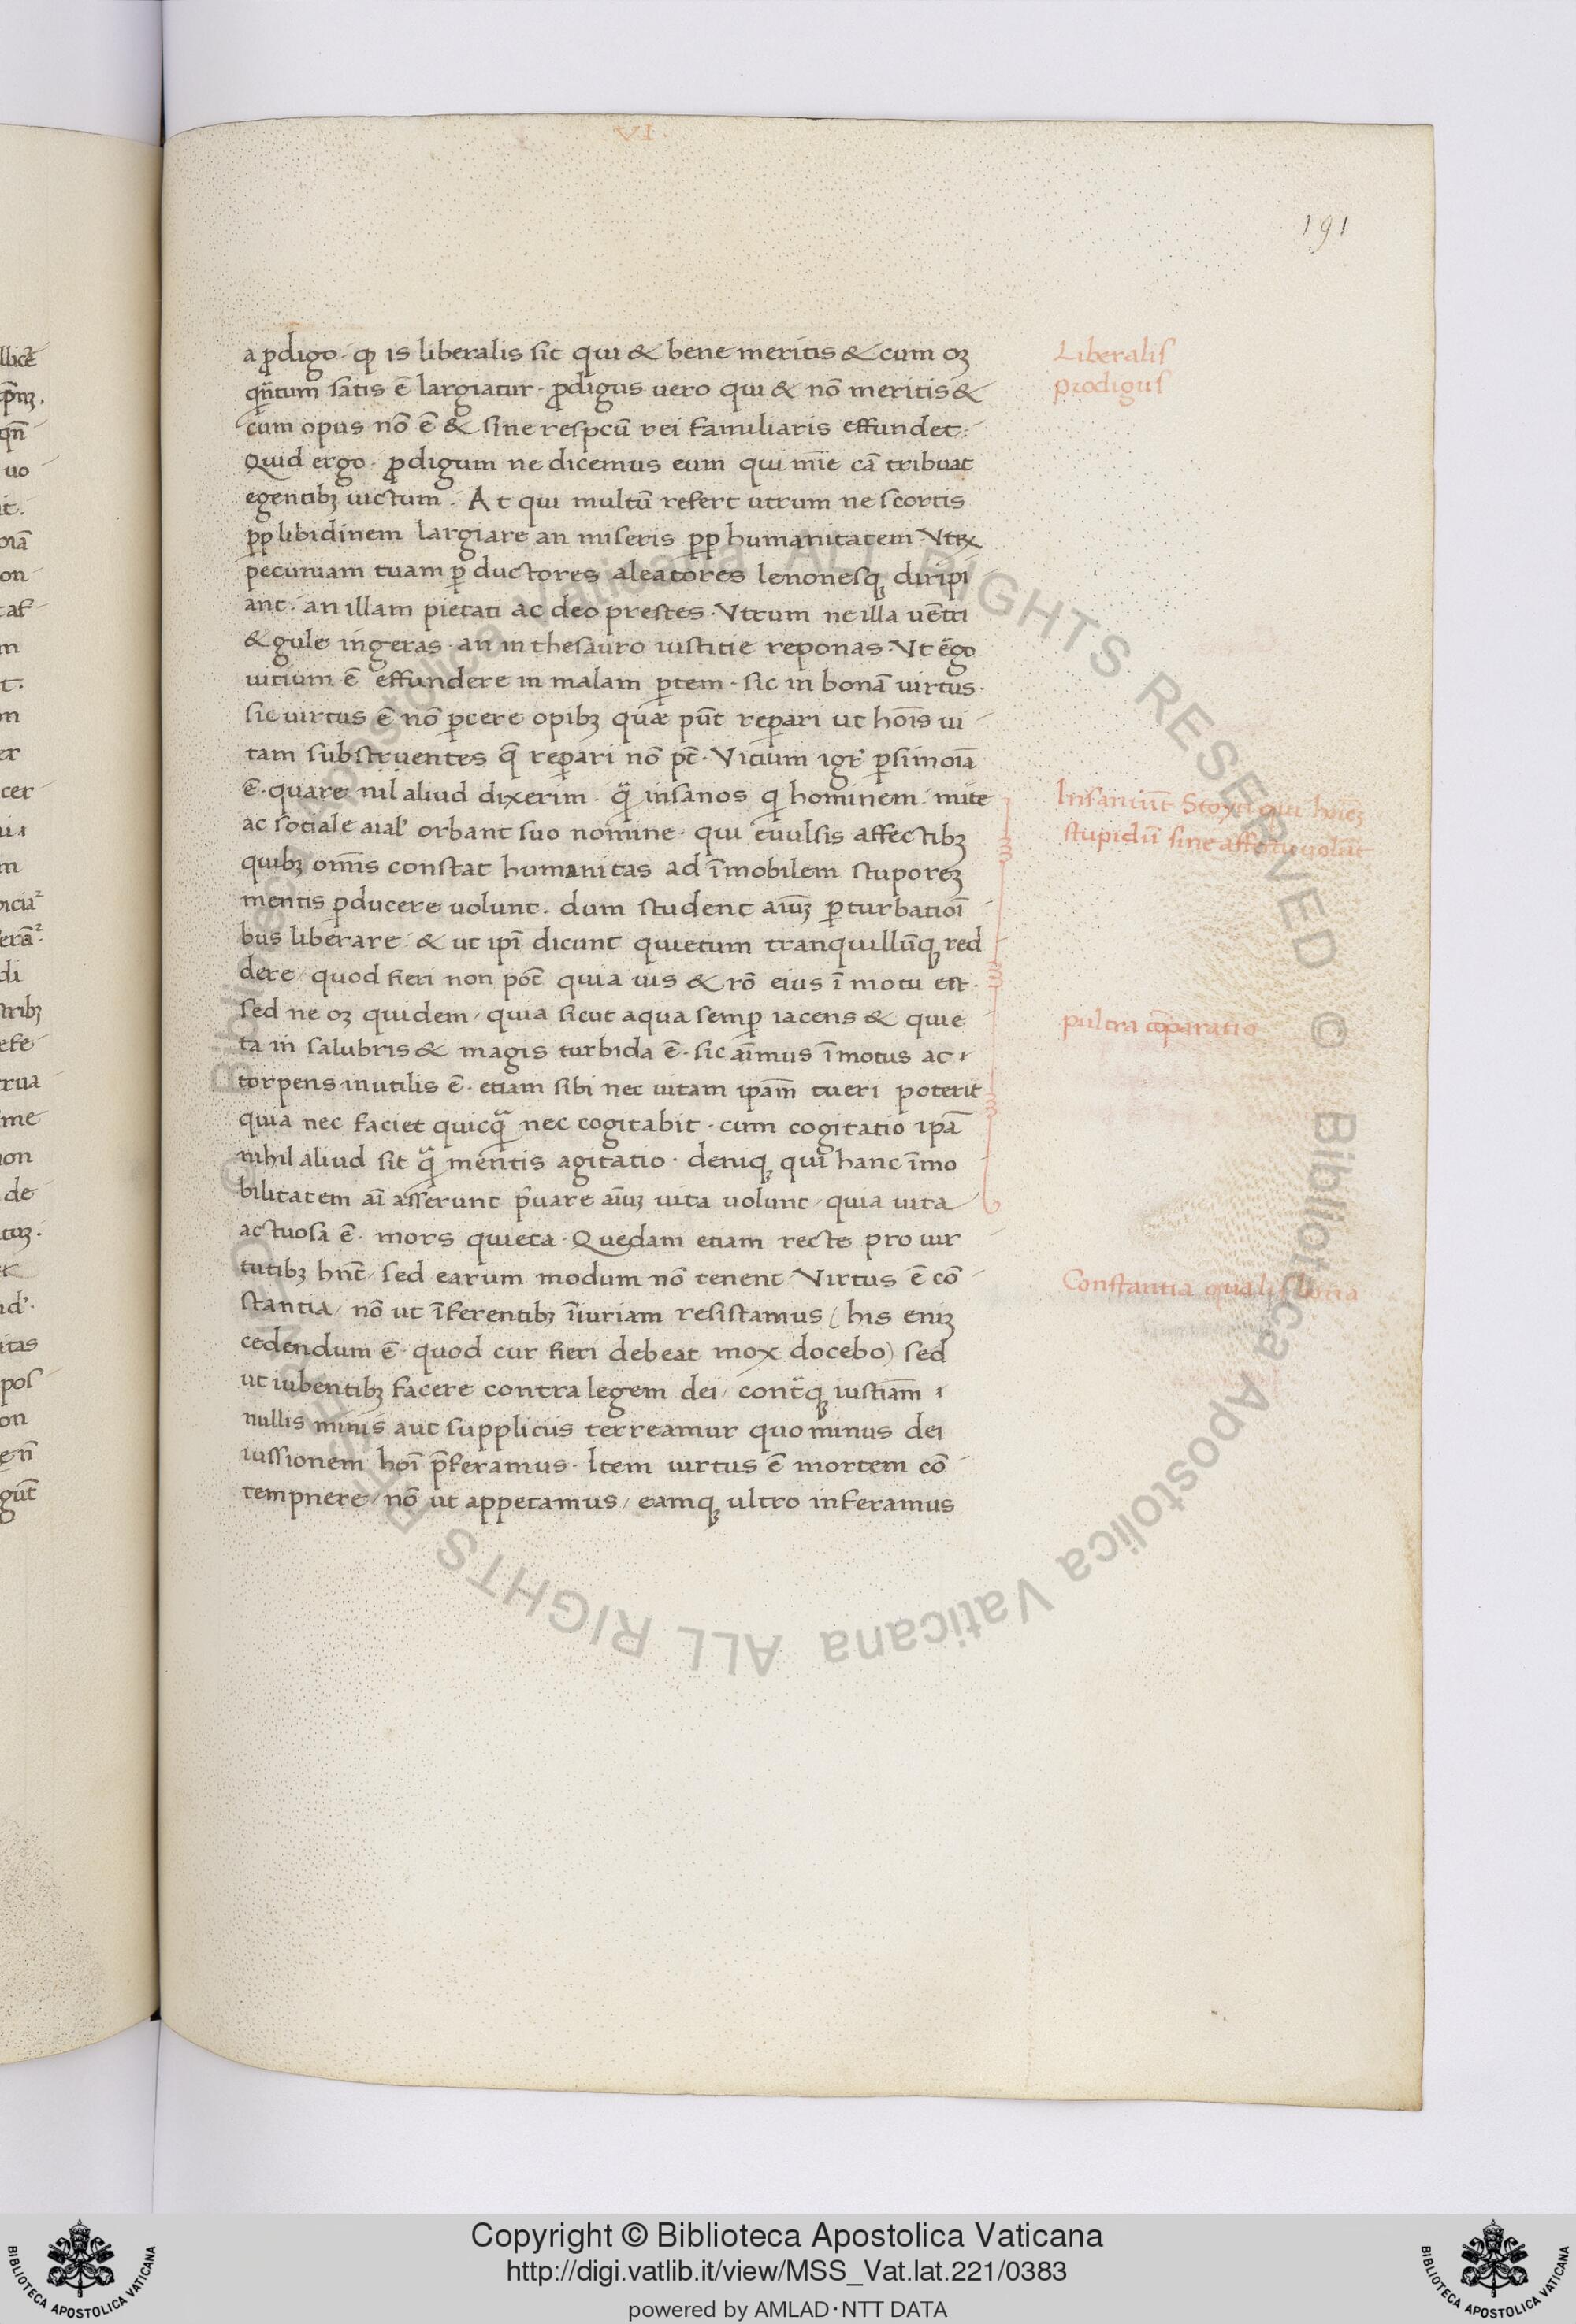 VI.
191
a ꝓdigo · ꝙ is liberalis sit qui & bene meritis & cum oꝫ
qñtum satis ē largiatur · ꝓdigus vero qui & nō meritis &
cum opus nō ē & sine respcū rei familiaris effundet :
Quid ergo · ꝓdigum ne dicemus eum qui mīe cā tribuat
egentibꝫ uictum · At qui multū refert utrum ne scortis
ꝓp libidinem largiare an miseris ꝓp humanitatem · Vtꝝ
pecuniam tuam ꝑductores aleatores lenonesqꝫ diripi
ant · an illam pietati ac deo prestes · Vtrum ne illā uētri
& gule ingeras · an in thesauro iustitie reponas · Vt ēgo
uitium ē effundere in malam ꝑtem · sic in bonā uirtus ·
sic uirtus ē nō ꝑcere opibꝫ quæ pūt reꝑari ut hoīs ui
tam substruentes q̄ reꝑari nō pt̄ · Vitium igr̃ ꝑsimoīa
ē · quare nil aliud dixerim · q̃ insanos q̇ hominem · mite
ac sotiale aial' orbant suo nomine · qui euulsis affectibꝫ
quibꝫ omīs constat humanitas ad īmobilem stuporeꝫ
mentis ꝑducere uolunt · dum student aīuꝫ ꝑturbatioī
bus liberare · & ut ip̄i dicunt quietum tranquillūqꝫ red
dere / quod fieri non pōt quia uis & rō eius ī motu est ·
sed ne oꝫ quidem / quia sicut aqua semꝑ iacens & quie
ta in salubris & magis turbida ē · sic aīmus īmotus ac
torpens inutilis ē · etiam sibi nec uitam ipam̄ tueri poterit
quia nec faciet quicq̃ nec cogitabit · cum cogitatio ipā
nihil aliud sit q̃ mentis agitatio · deniqꝫ qui hanc īmo
bilitatem aī asserunt ṗuare aīuꝫ uita uolunt / quia uita
actuosa ē · mors quieta · Quedam etiam recte pro uir
tutibꝫ hn̄t / sed earum modum nō tenent Virtus ē cō
stantia / nō ut īferentibꝫ īiuriam resistamus ( his eniꝫ
cedendum ē · quod cur fieri debeat mox docebo) sed
ut iubentibꝫ facere contra legem dei / cont̃qꝫ iustiam̄
nullis minis aut suppliciis terreamur quo minus dei
iussionem hoī p̄feramus · Item uirtus ē mortem cō
tempnere / nō ut appetamus / eamqꝫ ultro inferamus
Liberalis
prodigus
Insaniūt Stoyci qui hoīeꝫ
stupidū sine affectu uolūt
pulcra cōparatio
Constantia qualis bona
Copyright © Biblioteca Apostolica Vaticana
http://digi.vatlib.it/view/MSS_Vat.lat.221/0383
powered by AMLAD·NTT DATA